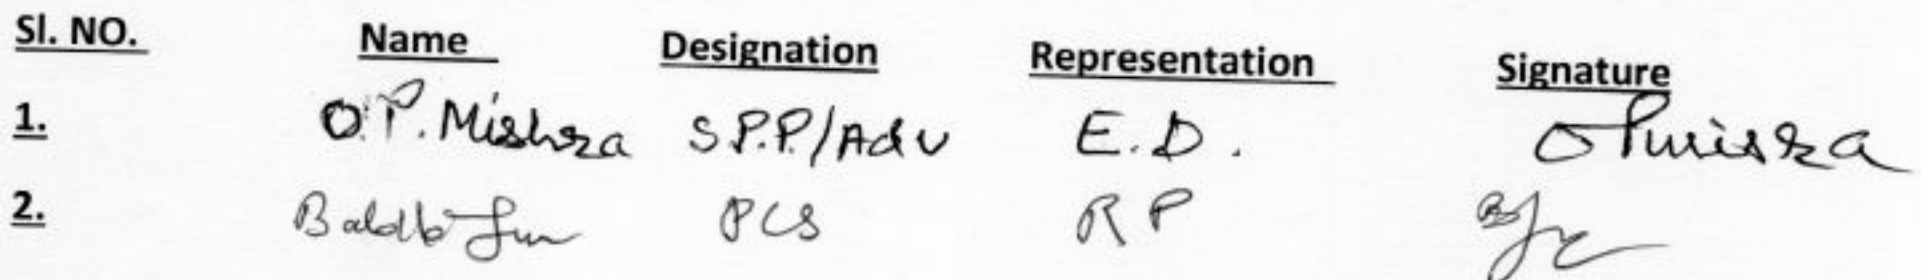 Sl. NO. Name Designation Representation Signature
1. O.P. Mishra S.P.P./Adv E.D. OPmisra
2. PCS RP